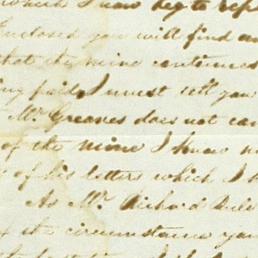 which I now beg to rep
Enclosed you will find an
that the mine continues
ing paid, I must tell you
Mr Greaves does not can
of the mine I know n
of his letter which I s
As Mr Richard Rule
of the circumstance you